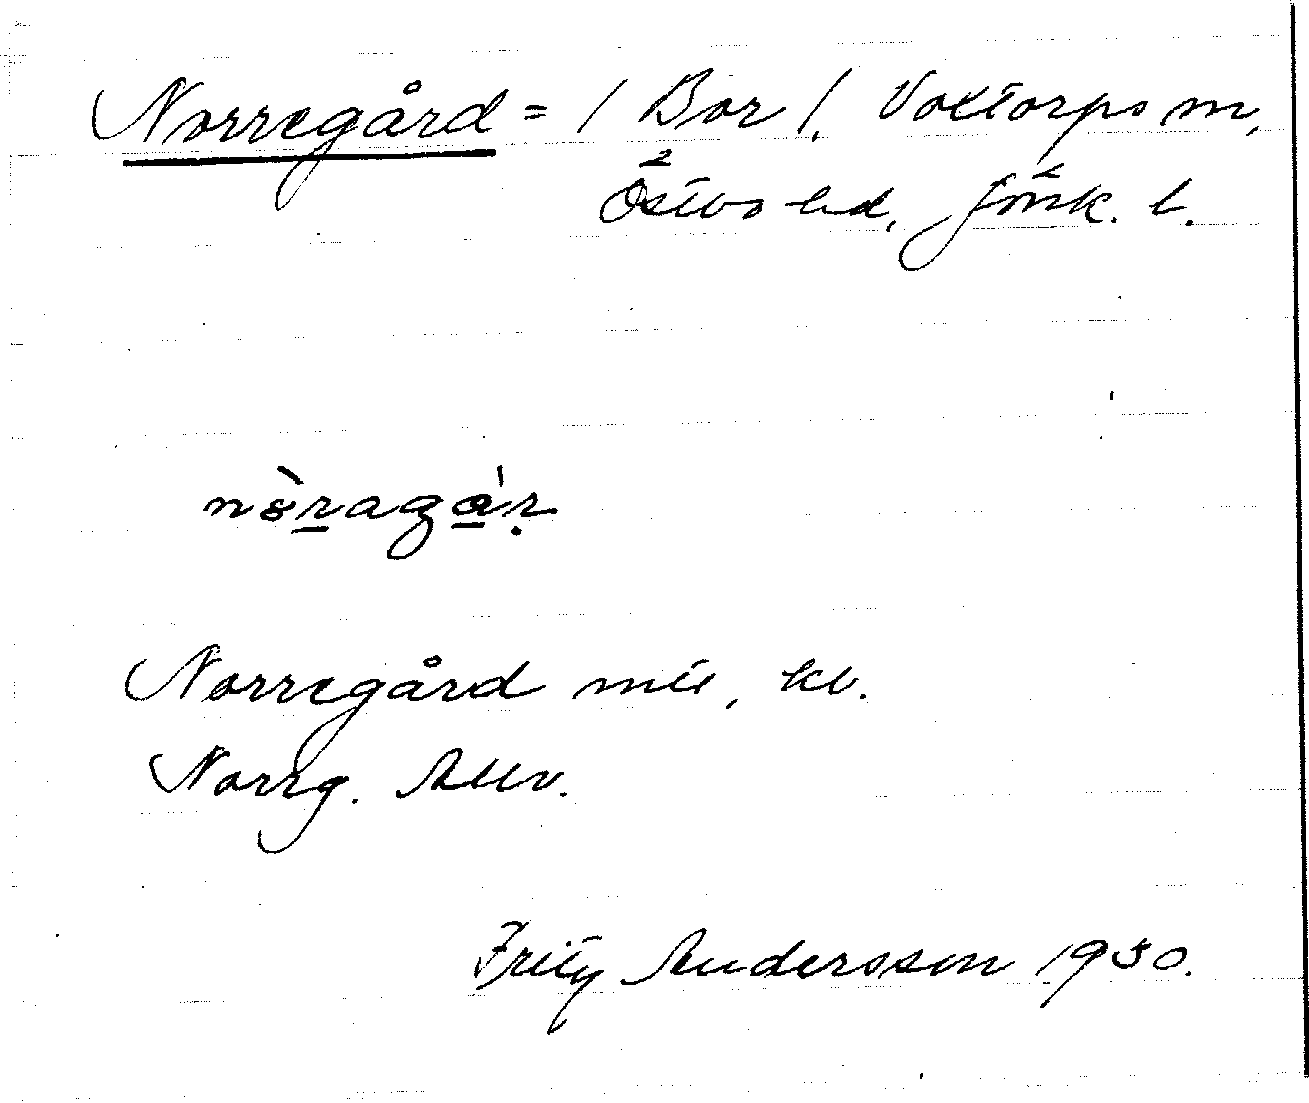 Norregård = / Bor /. Voxtorps sn,
Östbo hd, Jönk. l.
nòragár
Norregård mtl, kb.
Norrg. Allv.
Fritz Andersson 1930.